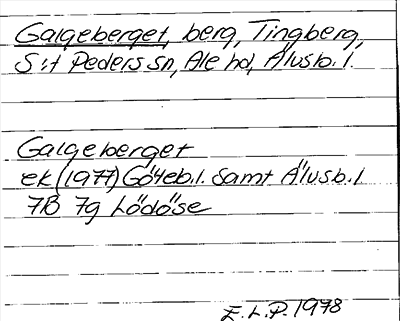 Galgeberget, berg, Tingberg,
S:t Peders sn, Ale hd, Älvsb. l.
Galgeberget
ek (1977) Göteb. l. samt Älvsb. l
7B 7g Lödöse
E.L.P. 1978